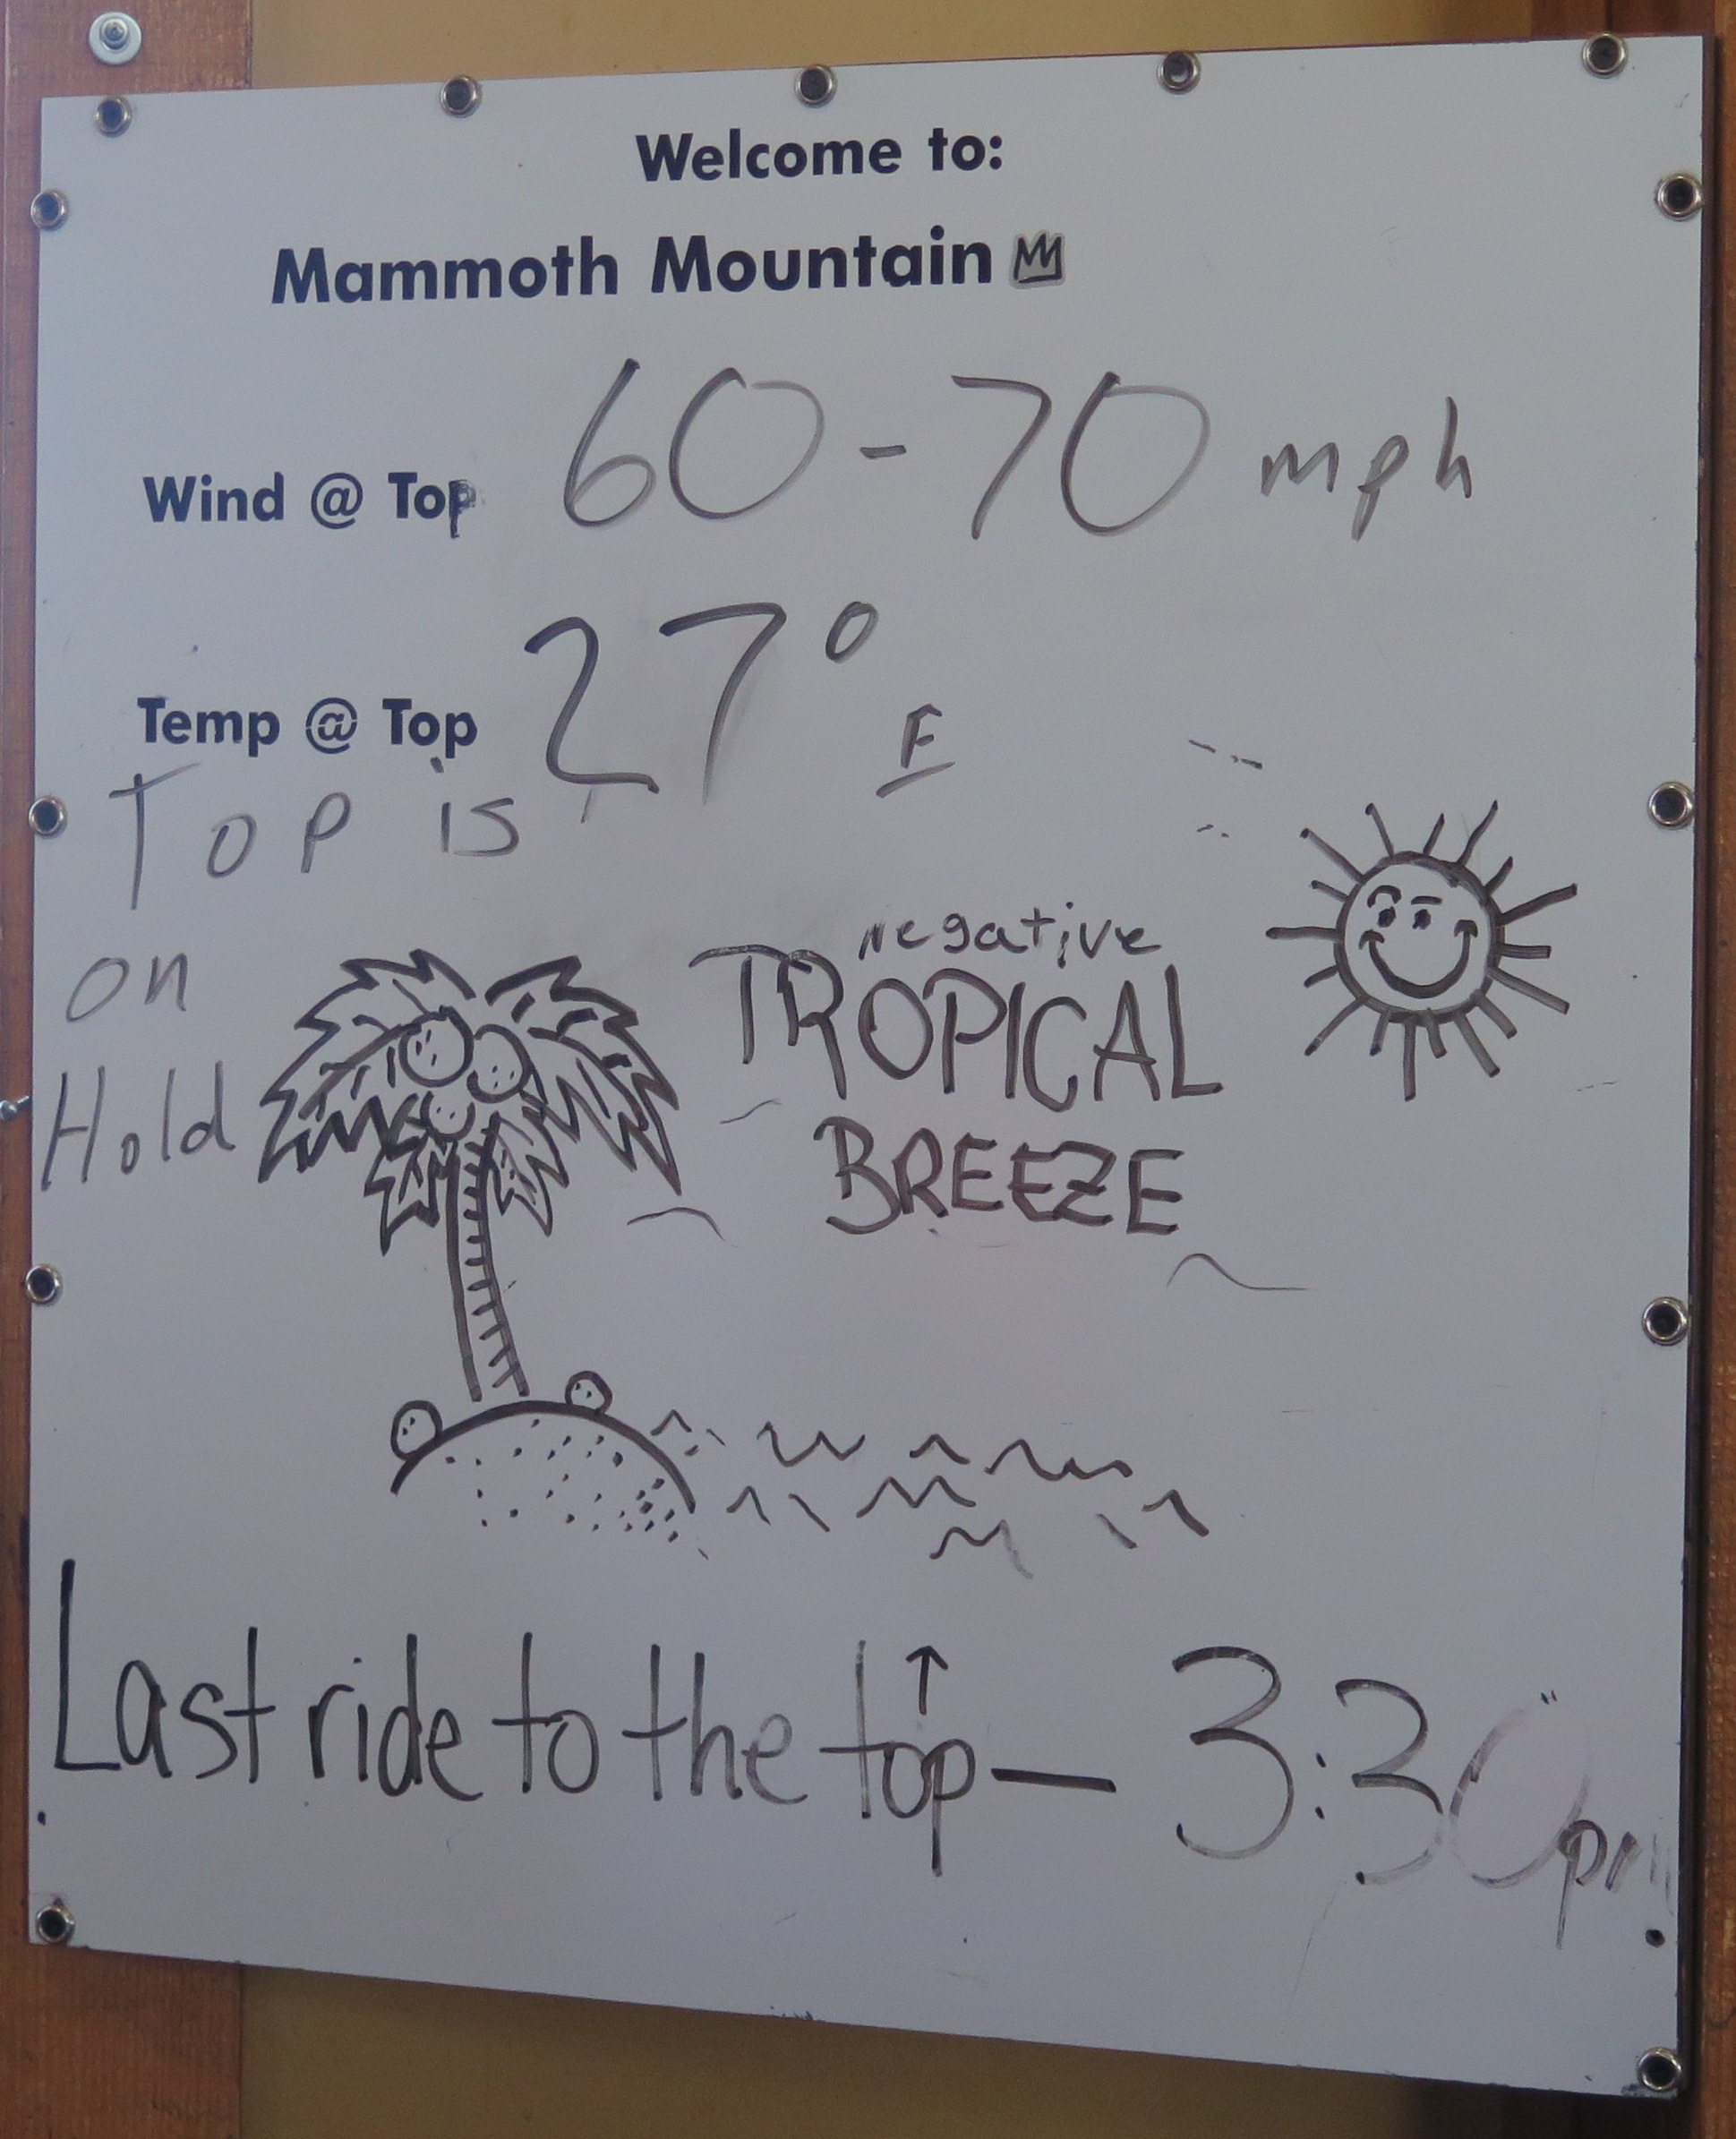 Welcome to:
Mammoth Mountain
Wind @ Top 60-70 mph
Temp @ Top 27° F
Top is
on
Hold
negative
TROPICAL
BREEZE
Last ride to the top — 3:30pm